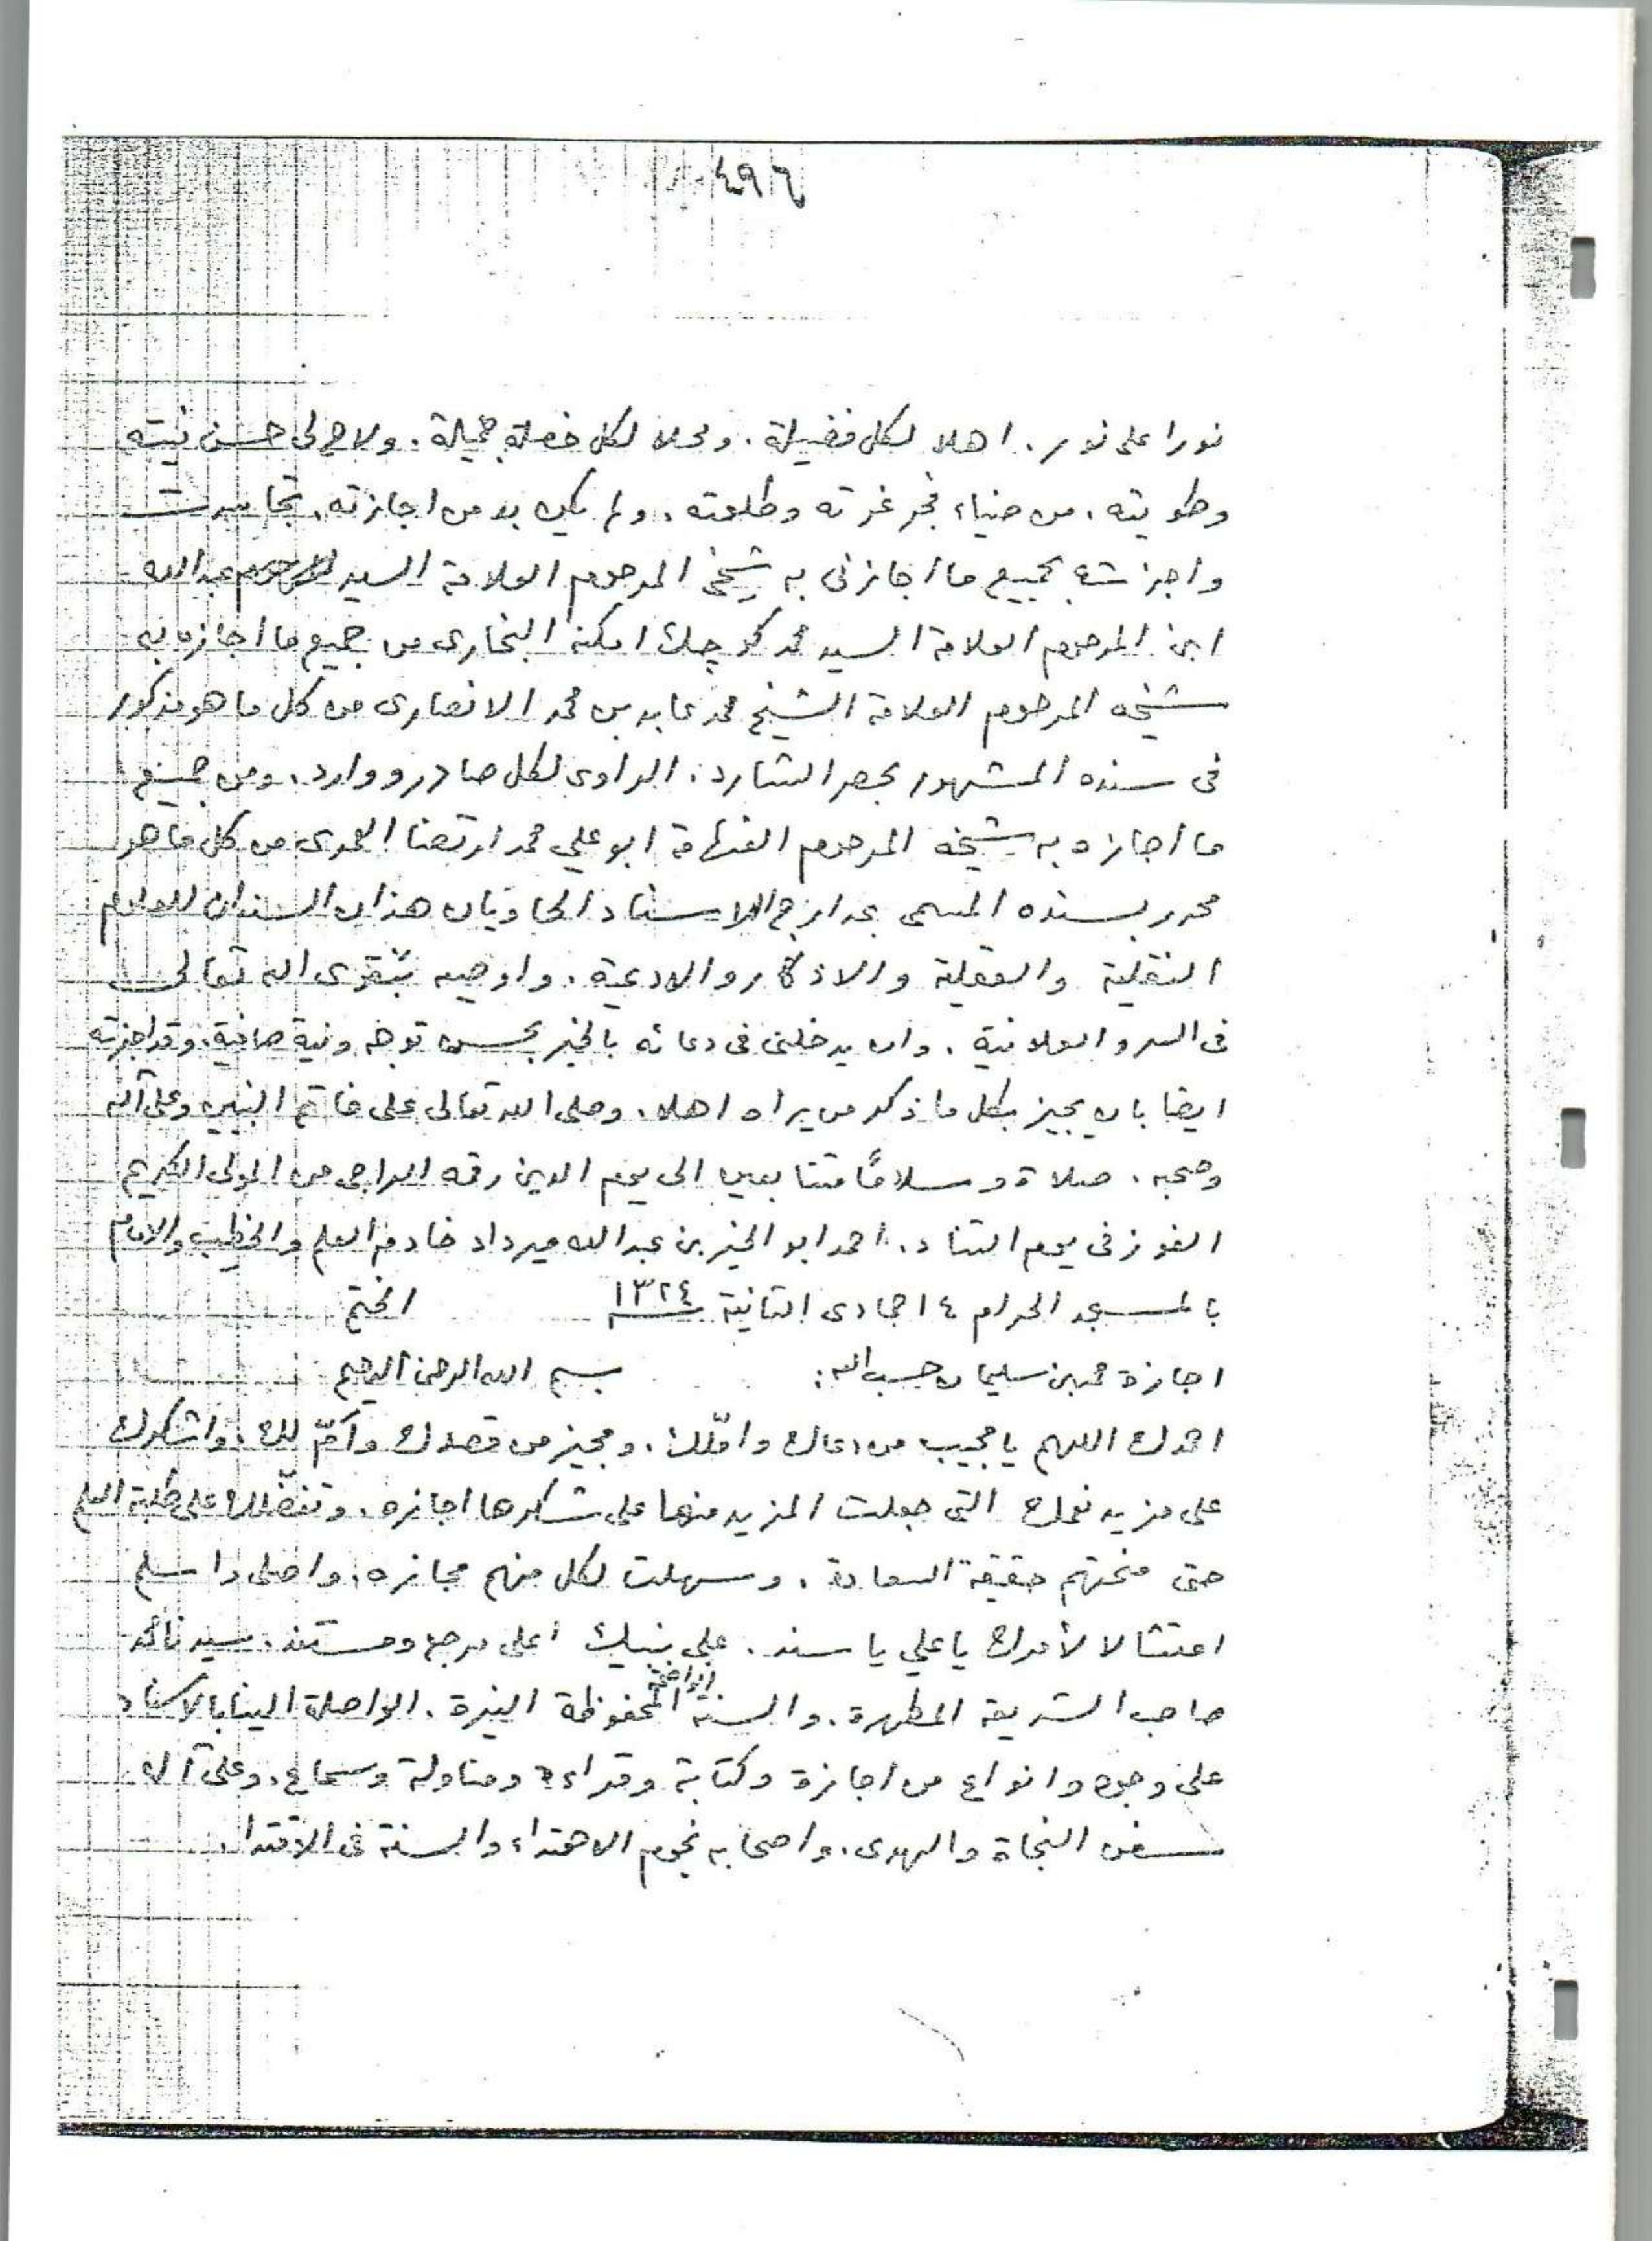 ٤٩٦
نورا على نور . اهلا لكل فضيلة . ومحلا لكل خصلة جميلة . ولاح لى حسن نيته
وطويته . من ضياء فجر غرته وطلعته . ولم يكن بد من اجازته . تجاسرت
واجزته بجميع ما اجازنى به شيخى المرحوم العلامة السيد عبدالله
ابن المرحوم العلامة السيد محمد كوچك البخارى من جميع ما اجازه به
شيخه المرحوم العلامة الشيخ محمد عابد بن محمد الانصارى من كل ما هو مذكور
فى سنده المشهور بحصر الشارد . الراوى لكل صادر ووارد . ومن جميع
ما اجازه به شيخه المرحوم الفهامة ابو علي محمد ارتضا العمرى من كل ما هو
محرر بسنده المسمى بمدارج الاسناد الحاويان هذان السندان للعلوم
النقلية والعقلية والاذكار والادعية . واوصيه بتقوى الله تعالى
فى السر والعلانية . وان يدخلنى فى دعائه بالخير بحسن توجه ونية صافية . وقد اجزته
ايضا بان يجيز بكل ما ذكر من يراه اهلا . وصلى الله تعالى على خاتم النبيين وعلى آله
وصحبه . صلاة وسلامًا متتابعين الى يوم الدين رقمه الراجى من المولى الكريم
الفوز فى يوم التناد . احمد ابو الخير بن عبد الله ميرداد خادم العلم والخطيب والامام
بالمسجد الحرام ١٤ جمادى الثانية ١٣٢٤ الختم
اجازة محمد بن سليمان حسب الله : بسم الله الرحمن الرحيم
احمدك اللهم يا مجيب من دعاك وامّلك . ومجيز من قصدك وأمّ لك . واشكرك
على مزيد نعمك التى جعلت المزيد منها على شكرها اجازه . وتفضّلك على طلبة العلم
حتى منحتهم حقيقة السعادة . وسهلت لكل منهم مجازه . واصلى واسلم
امتثالا لأمرك يا علي يا سند . على نبيك اعلى مرجع ومستند . سيدنا محمد
صاحب الشريعة المطهرة . والسنة الواضحة المحفوظة النيرة . الواصلة الينا بالاسناد
على وجوه وانواع من اجازة وكتابة وقراءة ومناولة وسماع . وعلى آله
سفن النجاة والهدى . واصحابه نجوم الاهتداء والسنة فى الاقتدا .